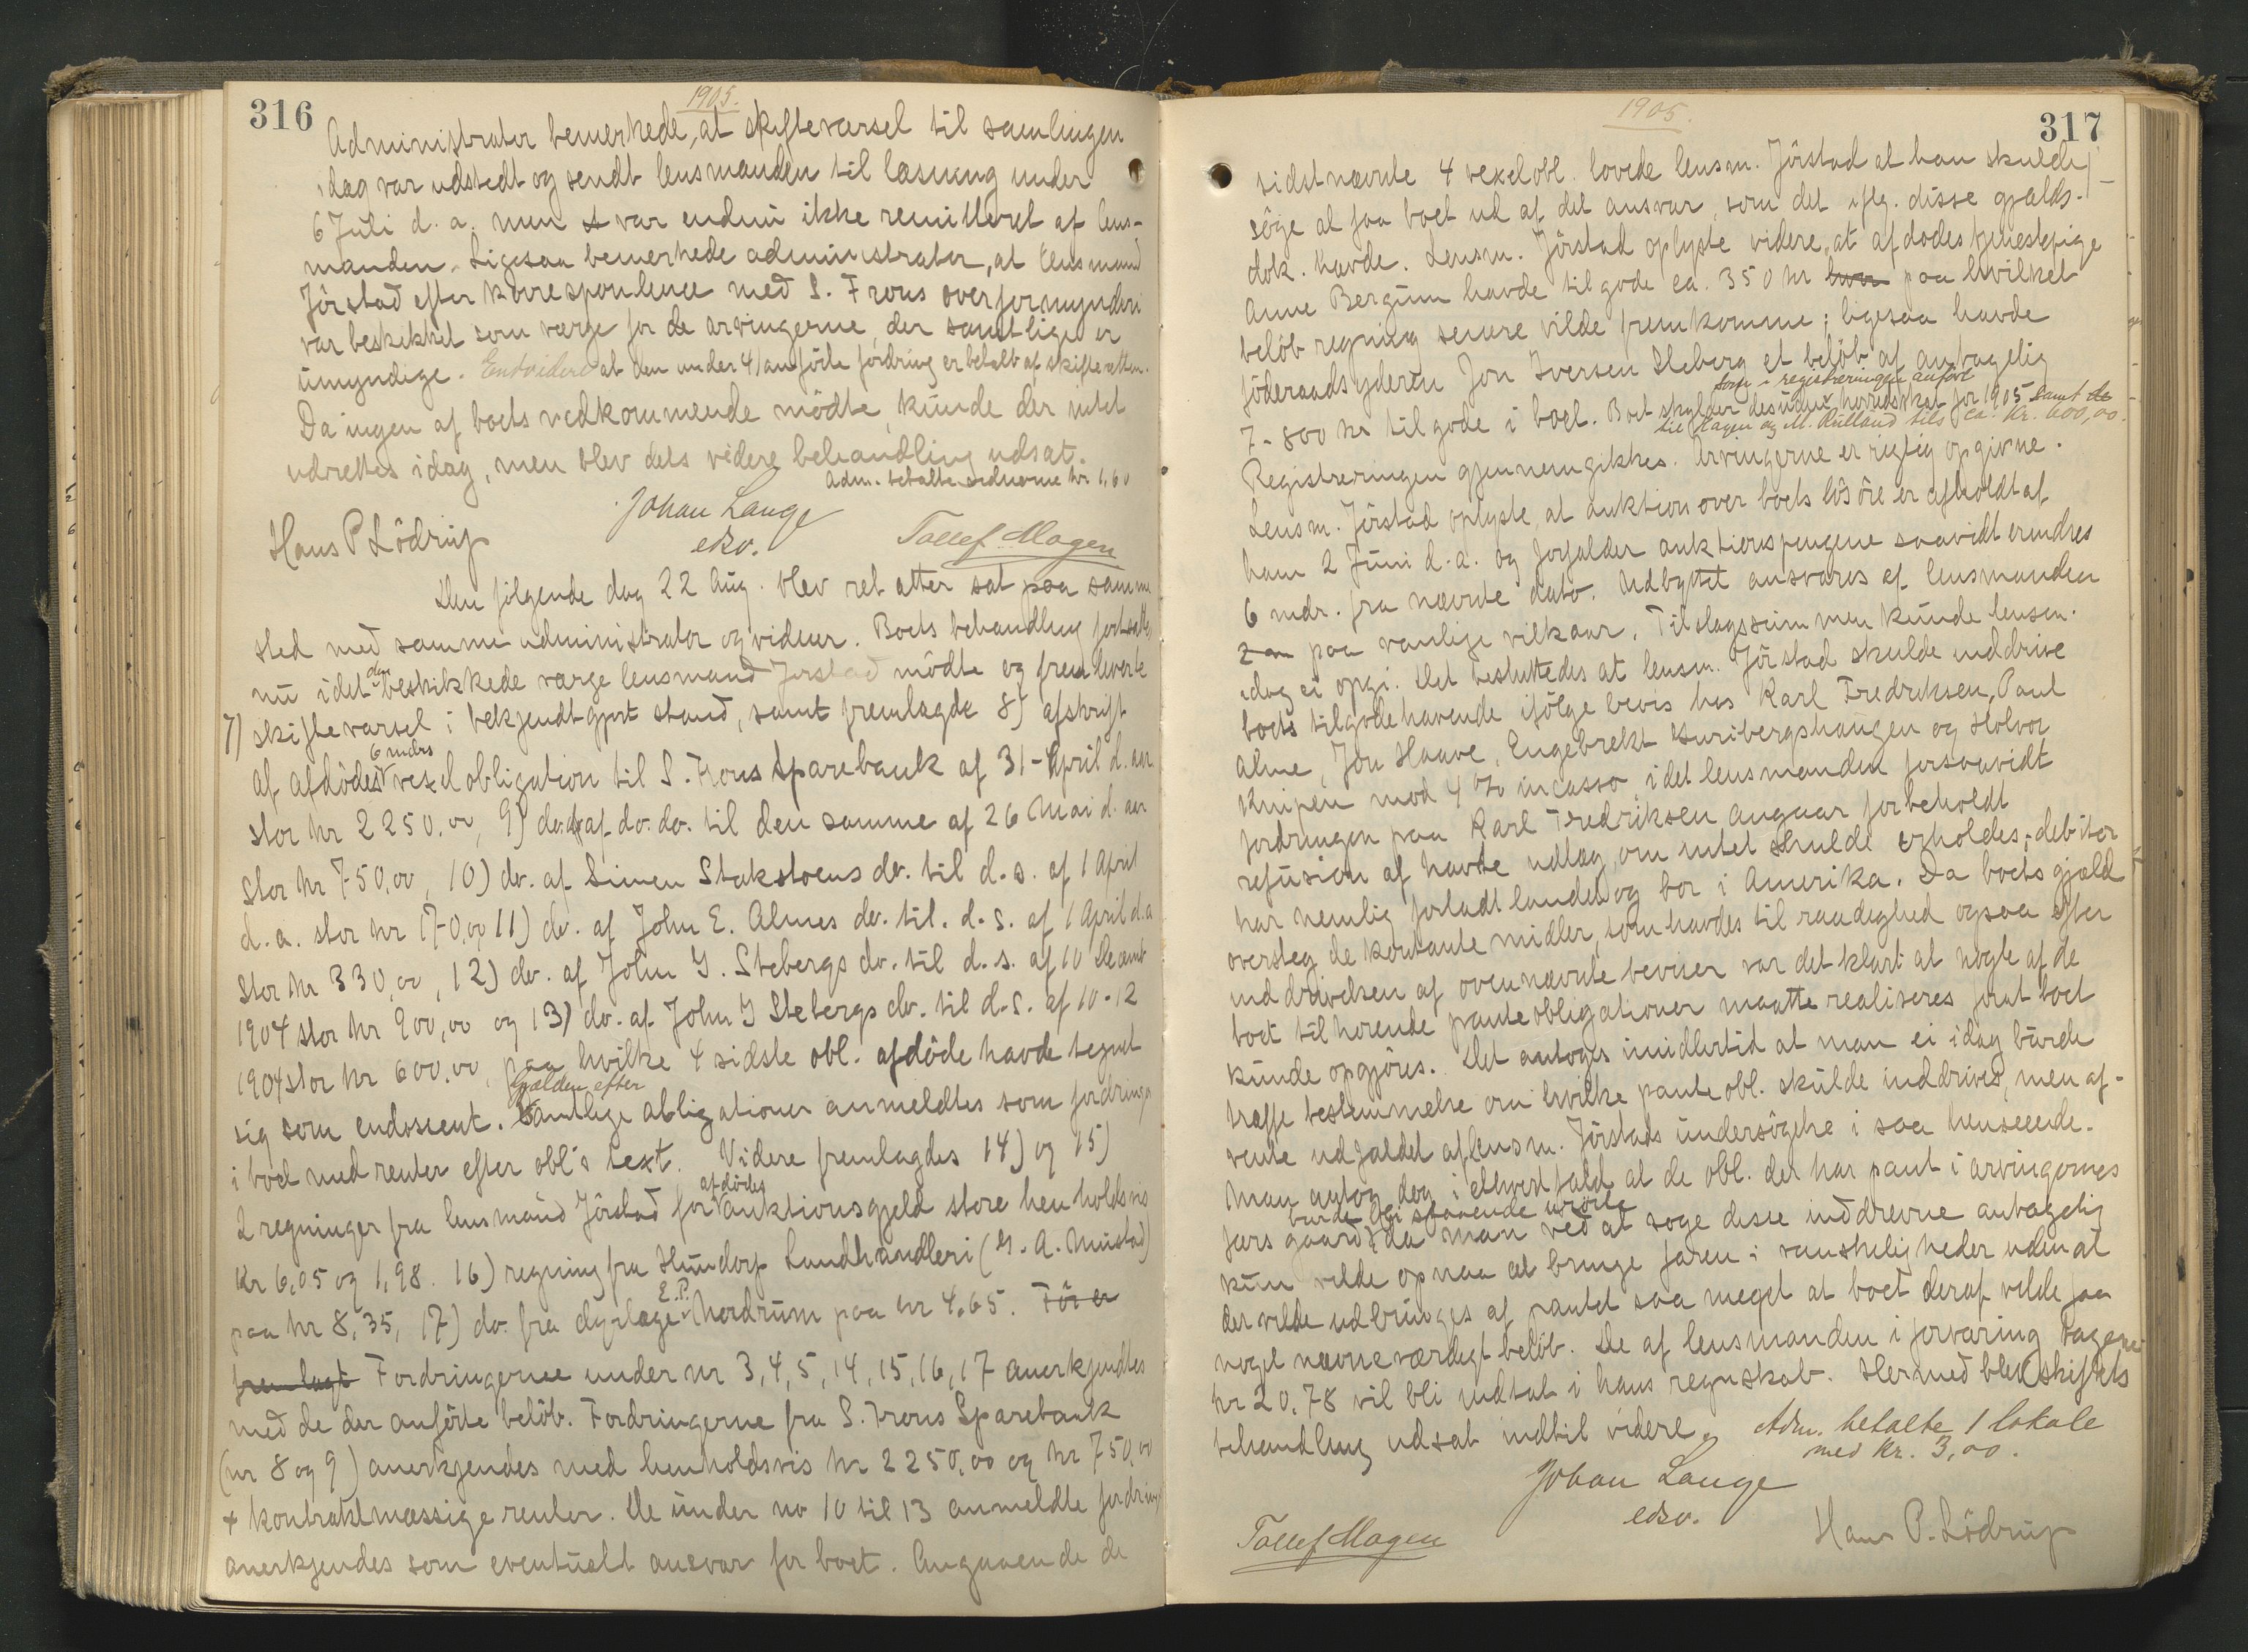 316
1905.
Administrator bemerkede, at skiftevarsel til samlingen
idag var udstedt og sendt lensmanden til læsning under
6 Juli d. a. men var endnu ikke remitteret af lens-
manden. Ligesaa bemerkede administrator, at lensmand
Jörstad efter korrespondence med S. Frons overformynderi
var beskikket som værge for de arvingerne, der samtlige er
umyndige. Endvidere at den under 4) anförte fordring er betalt af skifteretten.
Da ingen af boets vedkommende mödte, kunde der intet
udrettes idag, men blev dets videre behandling udsat.
Adm. betalte vidnerne kr 1,60
Johan Lange
edsv.
Hans P. Lödrup
Tollef Hagen
Den fölgende dag 22 Aug. blev ret atter sat paa samme
sted med samme administrator og vidner. Boets behandling fortsattes
nu idet den beskikkede værge lensmand Jorstad mödte og fremleverte
7) skiftevarsel i bekjendtgjort stand, samt fremlagde 8) afskrift
af afdödes 6 mdrs vexelobligation til S. Frons Sparebank af 31 April d. aar
stor kr 2250.00, 9) do af do. do. til den samme af 26 Mai d. aar
stor kr 750,00, 10) do. af Simen Stakstoens do. til d. s. af 1 April
d. a. stor kr 170,00 11) do. af John E. Almes do. til. d. s. af 1 April d. a
stor kr 330,00, 12) do. af John I. Stebergs do. til d. s. af 10 Decembr
1904 stor kr 900,00 og 13) do. af John I Stebergs do. til d. s. af 10-12
1904 stor kr 600.00, paa hvilke 4 sidste obl. afdöde havde tegnet
sig som endossent. Gjælden efter samtlige obligationer anmeldtes som fordringer
i boet med renter efter obl's text. Videre fremlagdes 14) og 15)
2 regninger fra lensmand Jörstad for afdödes auktionsgjeld store henholdsvis
Kr 6,05 og 1,98. 16) regning fra Hundorp Landhandleri (G. A. Mustad)
paa kr 8,35, 17) do. fra dyrlæge E. P. Nordrum paa kr 4,65. För er
fremlagt Fordringerne under nr 3, 4, 5, 14, 15, 16, 17 anerkjendtes
med de der anförte belöb. Fordringerne fra S. Frons Sparebank
(nr 8 og 9) anerkjendes med henholdsvis kr 2250,00 og kr 750,00
+ kontraktmæssige renter. De under no 10 til 13 anmeldte fordringer
anerkjendes som eventuelt ansvar for boet. Angaaende de
1905.
317
sidstnævnte 4 vexelobl. lovede lensm. Jörstad at han skulde
söge at faa boet ud af det ansvar, som det iflg. disse gjælds-
dok. havde. Lensm. Jörstad oplyste videre, at afdödes tjenestepige
Anne Bergum havde tilgode ca. 350 kr paa hvilket
belöb regning senere vilde fremkomme; ligesaa havde
föderaadsyderen Jon Iversen Steberg et belöb af antagelig
7-800 kr tilgode i boet. Boet skylder desuden som i registreringen anfört herredsskat for 1905 samt
til Hagen og M. Rulland tils ca. Kr. 600,00.
Registreringen gjennemgikkes. Arvingerne er rigtig opgivne.
Lensm. Jörstad oplyste, at auktion over boets lösöre er afholdt af
ham 2 Juni d. a. og forfalder auktionspengene saavidt erindres
6 mdr. fra nævnte dato. Udbyttet ansvares af lensmanden
paa vanlige vilkaar. Tilslagssummen kunde lensm.
idag ei opgi. Det besluttedes at lensm. Jörstad skulde inddrive
boets tilgodehavende ifölge bevis hos Karl Fredriksen, Paul
Alme, Jon Haave, Engebrekt og Holvor
Knipen mod 4 % incasso, idet lensmanden forsaavidt
fordringen paa Karl Fredriksen angaar forbeholdt
refusion af havte udlæg, om intet skulde erholdes; debitor
har nemlig forladt landet og bor i Amerika. Da boets gjæld
oversteg de kontante midler, som havdes til raadighed ogsaa efter
inddrivelsen af ovennævnte beviser var det klart at nogle af de
boet tilhörende panteobligationer maatte realiseres forat boet
kunde opgjöres. Det antoges imidlertid at man ei idag burde
træffe bestemmelse om hvilke panteobl. skulde inddrives, men af-
vente udfaldet af lensm. Jörstads undersögelse i saa henseende.
Man antog dog i ethvert fald at de obl. der har pant i arvingernes
fars gaard burde bli staaende urörte da man ved at söge disse inddrevne antagelig
kun vilde opnaa at bringe faren i vanskeligheder uden at
der vilde udbringes af pantet saa meget at boet deraf vilde faa
noget nævneværdigt belöb. De af lensmanden i forvaring tagne
kr 20.78 vil bli indtat i hans regnskab. Hermed blev skiftets
behandling udsat indtil videre. Adm. betalte 1 lokale
med Kr. 3,00.
Johan Lange
edsv.
Tollef Hagen
Hans P. Lödrup